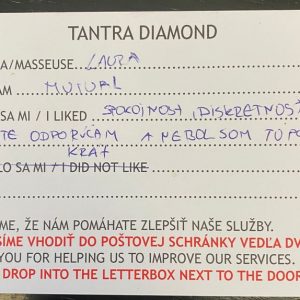 TANTRA DIAMOND
A/MASSEUSE LAURA
AM MUTUAL
SA MI / I LIKED SPOKOJNOSŤ, DISKRÉTNOSŤ
TE ODPORÚČAM A NEBOL SOM TU PO
KRÁT
LO SA MI / I DID NOT LIKE
ME, ŽE NÁM POMÁHATE ZLEPŠIŤ NAŠE SLUŽBY.
SÍME VHODIŤ DO POŠTOVEJ SCHRÁNKY VEDĽA DV
YOU FOR HELPING US TO IMPROVE OUR SERVICES.
DROP INTO THE LETTERBOX NEXT TO THE DOOR